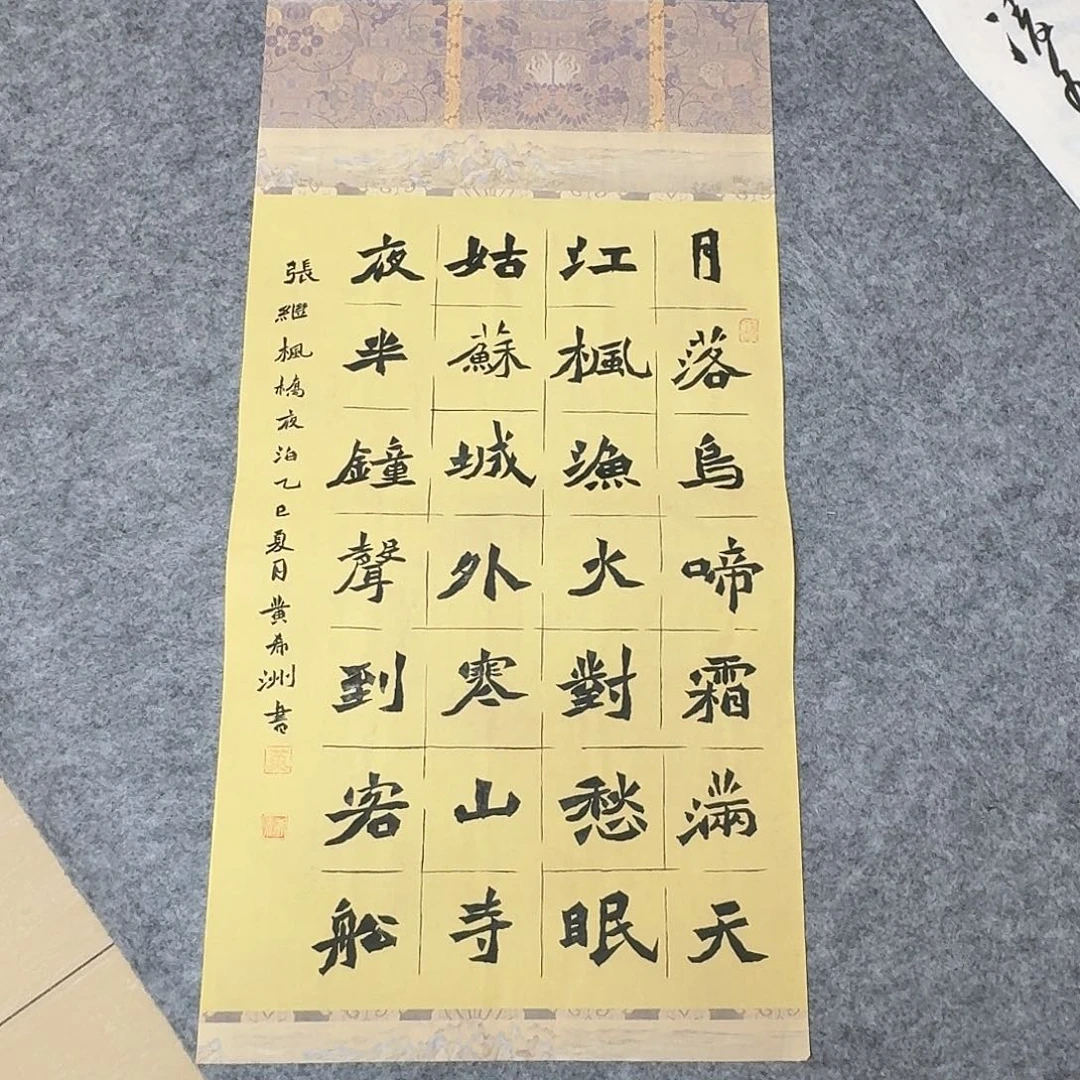 月落烏啼霜滿天
江楓漁火對愁眠
姑蘇城外寒山寺
夜半鐘聲到客船
張繼楓橋夜泊乙巳夏月黄希洲書